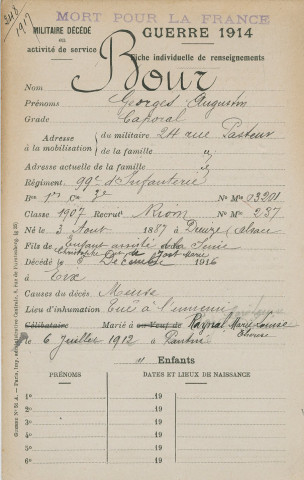 3118
1917
MORT POUR LA FRANCE
MILITAIRE DÉCÉDÉ
en
activité de service
GUERRE 1914
Fiche individuelle de renseignements
Nom Bour
Prénoms Georges Augustin
Grade Caporal
Adresse à la mobilisation du militaire 24 rue Pasteur
de la famille "
Adresse actuelle de la famille "
Régiment 99e d'Infanterie
Bon 1er Cie 3e No Mle 03201
Classe 1907 Recrut Riom No Mle 237
Né le 3 Aout 1887 à Dieuze Alsace
Fils de Enfant assisté de la Seine
Décédé le Décembre 1916
à Eix
Causes du décès Meuse
Lieu d'inhumation Tué à l'ennemi
Célibataire Marié à ou Veuf de Raynal Marie Louise
Thérèse
le 6 Juillet 1912 à Pantin
Enfants
PRÉNOMS DATES ET LIEUX DE NAISSANCE
1o 19
2o 19
3o 19
4o 19
5o 19
6o 19